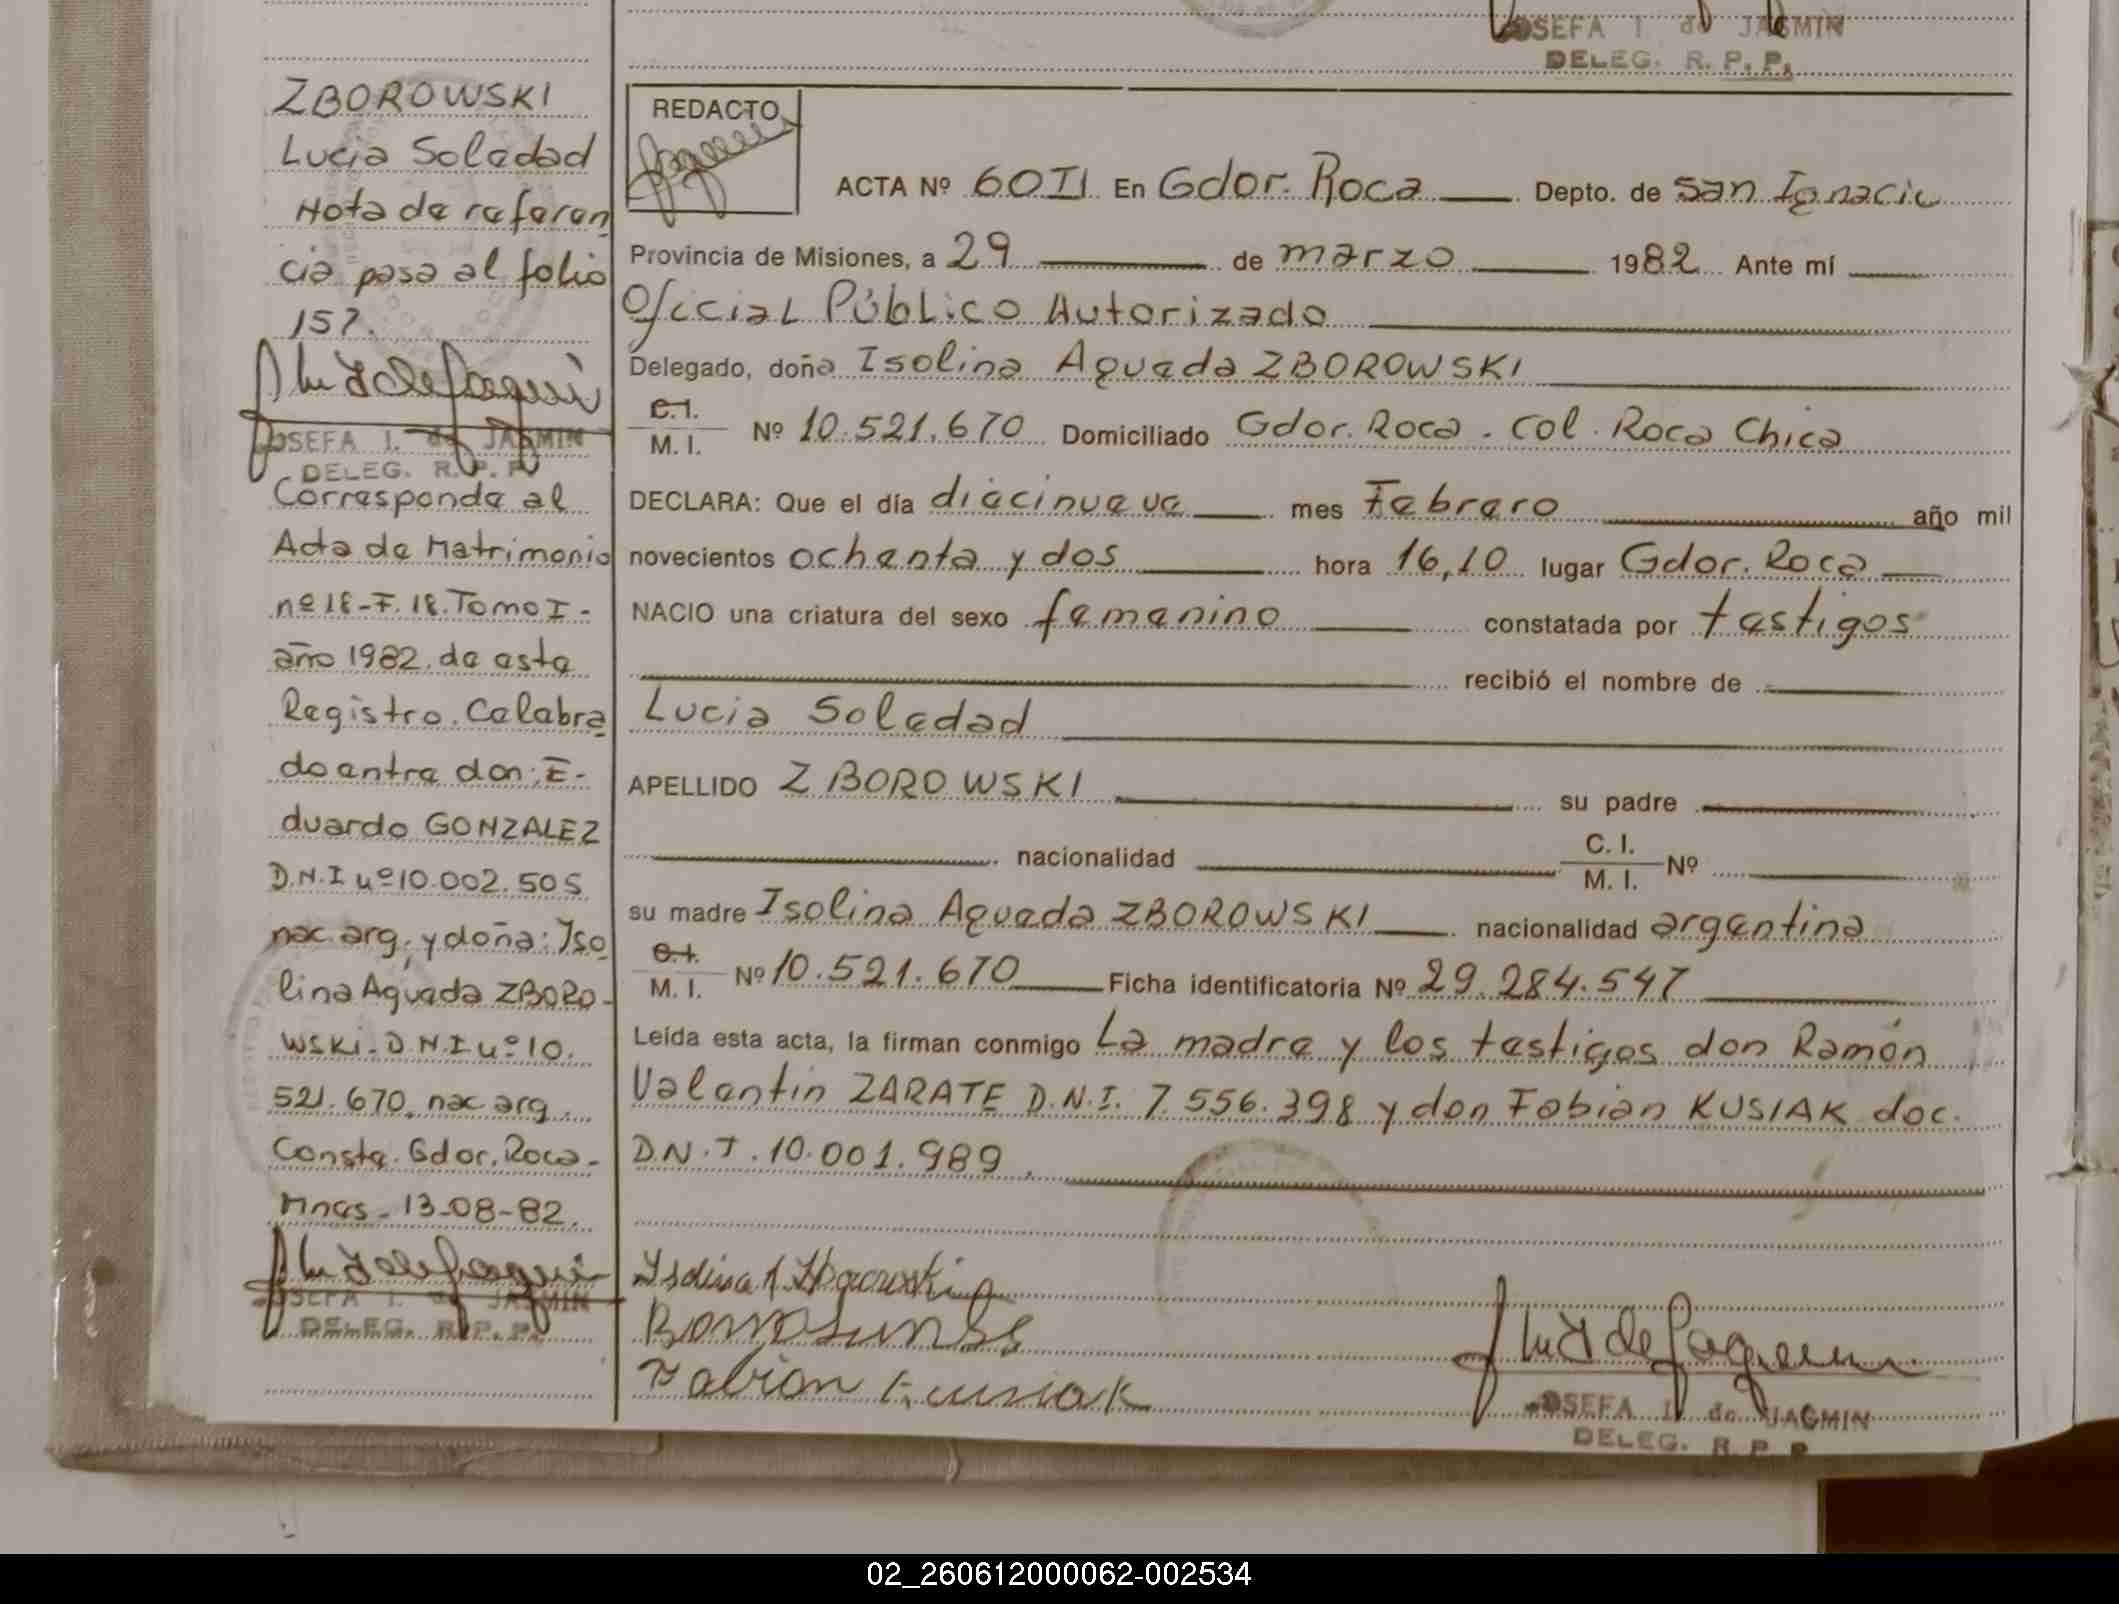 JOSEFA I. de JASMIN
DELEG. R. P. P.
ZBOROWSKI
Lucia Soledad
Nota de referen
cia pasa al folio
157.
JOSEFA I. de JASMIN
DELEG. R. P. P.
Corresponde al
Acta de Matrimonio
nº 18-F. 18. Tomo I-
año 1982. de este
Registro. Celebra
do entre don: E-
duardo GONZALEZ
D.N.I nº 10.002.505
nac. arg, y doña: Iso
lina Agueda ZBORO-
WSKI. D.N.I nº 10.
521.670. nac arg.
Conste. Gdor. Roca-
Mnes - 13-08-82.
JOSEFA I. de JASMIN
DELEG. R. P. P.
REDACTO
ACTA Nº 60 II En Gdor. Roca Depto. de San Ignacio
Provincia de Misiones, a 29 de marzo 1982 Ante mí
Oficial Público Autorizado
Delegado, doña Isolina Agueda ZBOROWSKI
C.I.
M. I. Nº 10.521.670 Domiciliado Gdor. Roca. Col. Roca Chica
DECLARA: Que el día diecinueve mes Febrero año mil
novecientos ochenta y dos hora 16,10 lugar Gdor. Roca
NACIO una criatura del sexo femenino constatada por testigos
recibió el nombre de
Lucia Soledad
APELLIDO ZBOROWSKI su padre
nacionalidad C. I. M. I. Nº
su madre Isolina Agueda ZBOROWSKI nacionalidad argentina
C.I.
M. I. Nº 10.521.670 Ficha identificatoria Nº 29.284.547
Leída esta acta, la firman conmigo La madre y los testigos don Ramón
Valentin ZARATE D.N.I. 7.556.398 y don Fabián KUSIAK doc.
D.N.I. 10.001.989.
Isolina A. Zborowski
Fabian Kusiak
JOSEFA I. de JASMIN
DELEG. R. P. P.
02_260612000062-002534